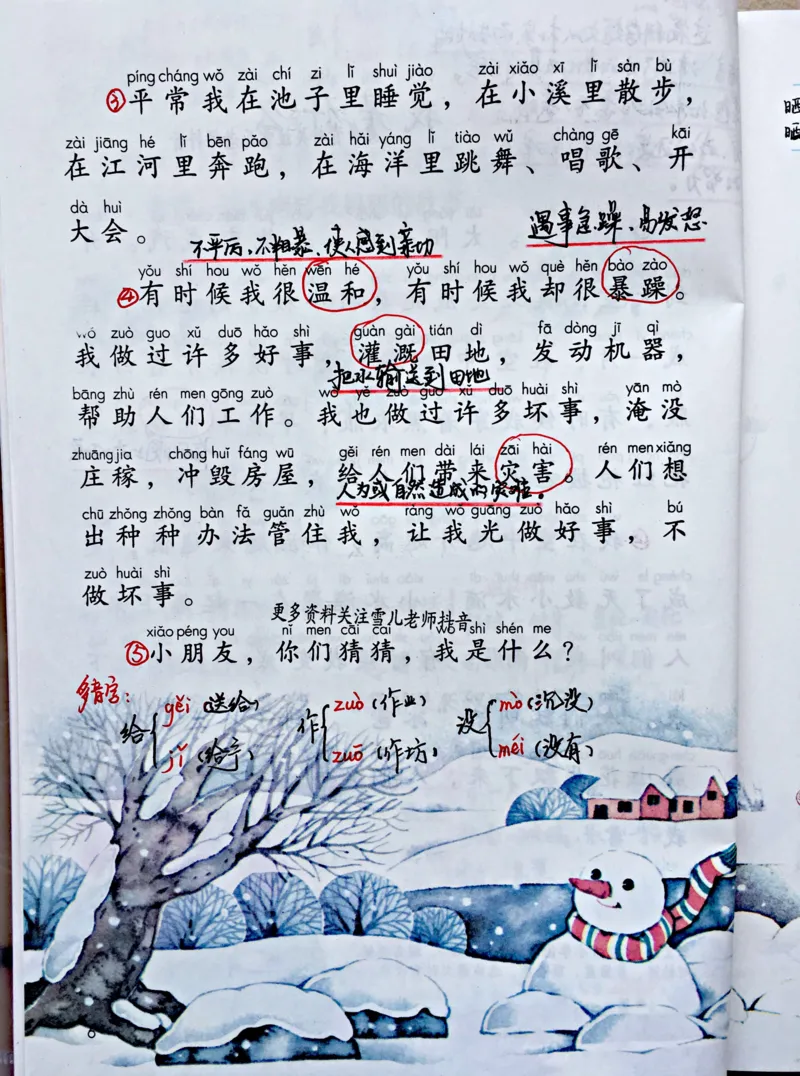 píng cháng wǒ zài chí zi lǐ shuì jiào zài xiǎo xī lǐ sàn bù
③平常我在池子里睡觉，在小溪里散步，
zài jiāng hé lǐ bēn pǎo zài hǎi yáng lǐ tiào wǔ chàng gē kāi
在江河里奔跑，在海洋里跳舞、唱歌、开
dà huì
大会。
不平丙，不粗暴，使人感到亲切
遇事急躁，易发怒
yǒu shí hou wǒ hěn wēn hé yǒu shí hou wǒ què hěn bào zào
④有时候我很温和，有时候我却很暴躁。
wǒ zuò guo xǔ duō hǎo shì guàn gài tián dì fā dòng jī qì
我做过许多好事，灌溉田地，发动机器，
把水输送到田地
bāng zhù rén men gōng zuò wǒ yě zuò guo xǔ duō huài shì yān mò
帮助人们工作。我也做过许多坏事，淹没
zhuāng jia chōng huǐ fáng wū gěi rén men dài lái zāi hài rén men xiǎng
庄稼，冲毁房屋，给人们带来灾害。人们想
人为或自然造成的灾难。
chū zhǒng zhǒng bàn fǎ guǎn zhù wǒ ràng wǒ guāng zuò hǎo shì bú
出种种办法管住我，让我光做好事，不
zuò huài shì
做坏事。
更多资料关注雪儿老师抖音
xiǎo péng you nǐ men cāi cai wǒ shì shén me
⑤小朋友，你们猜猜，我是什么？
多音字：
给 gěi（送给） 作 zuò（作业） 没 mò（沉没）
jǐ（给予） zuō（作坊） méi（没有）
6
晒
晒